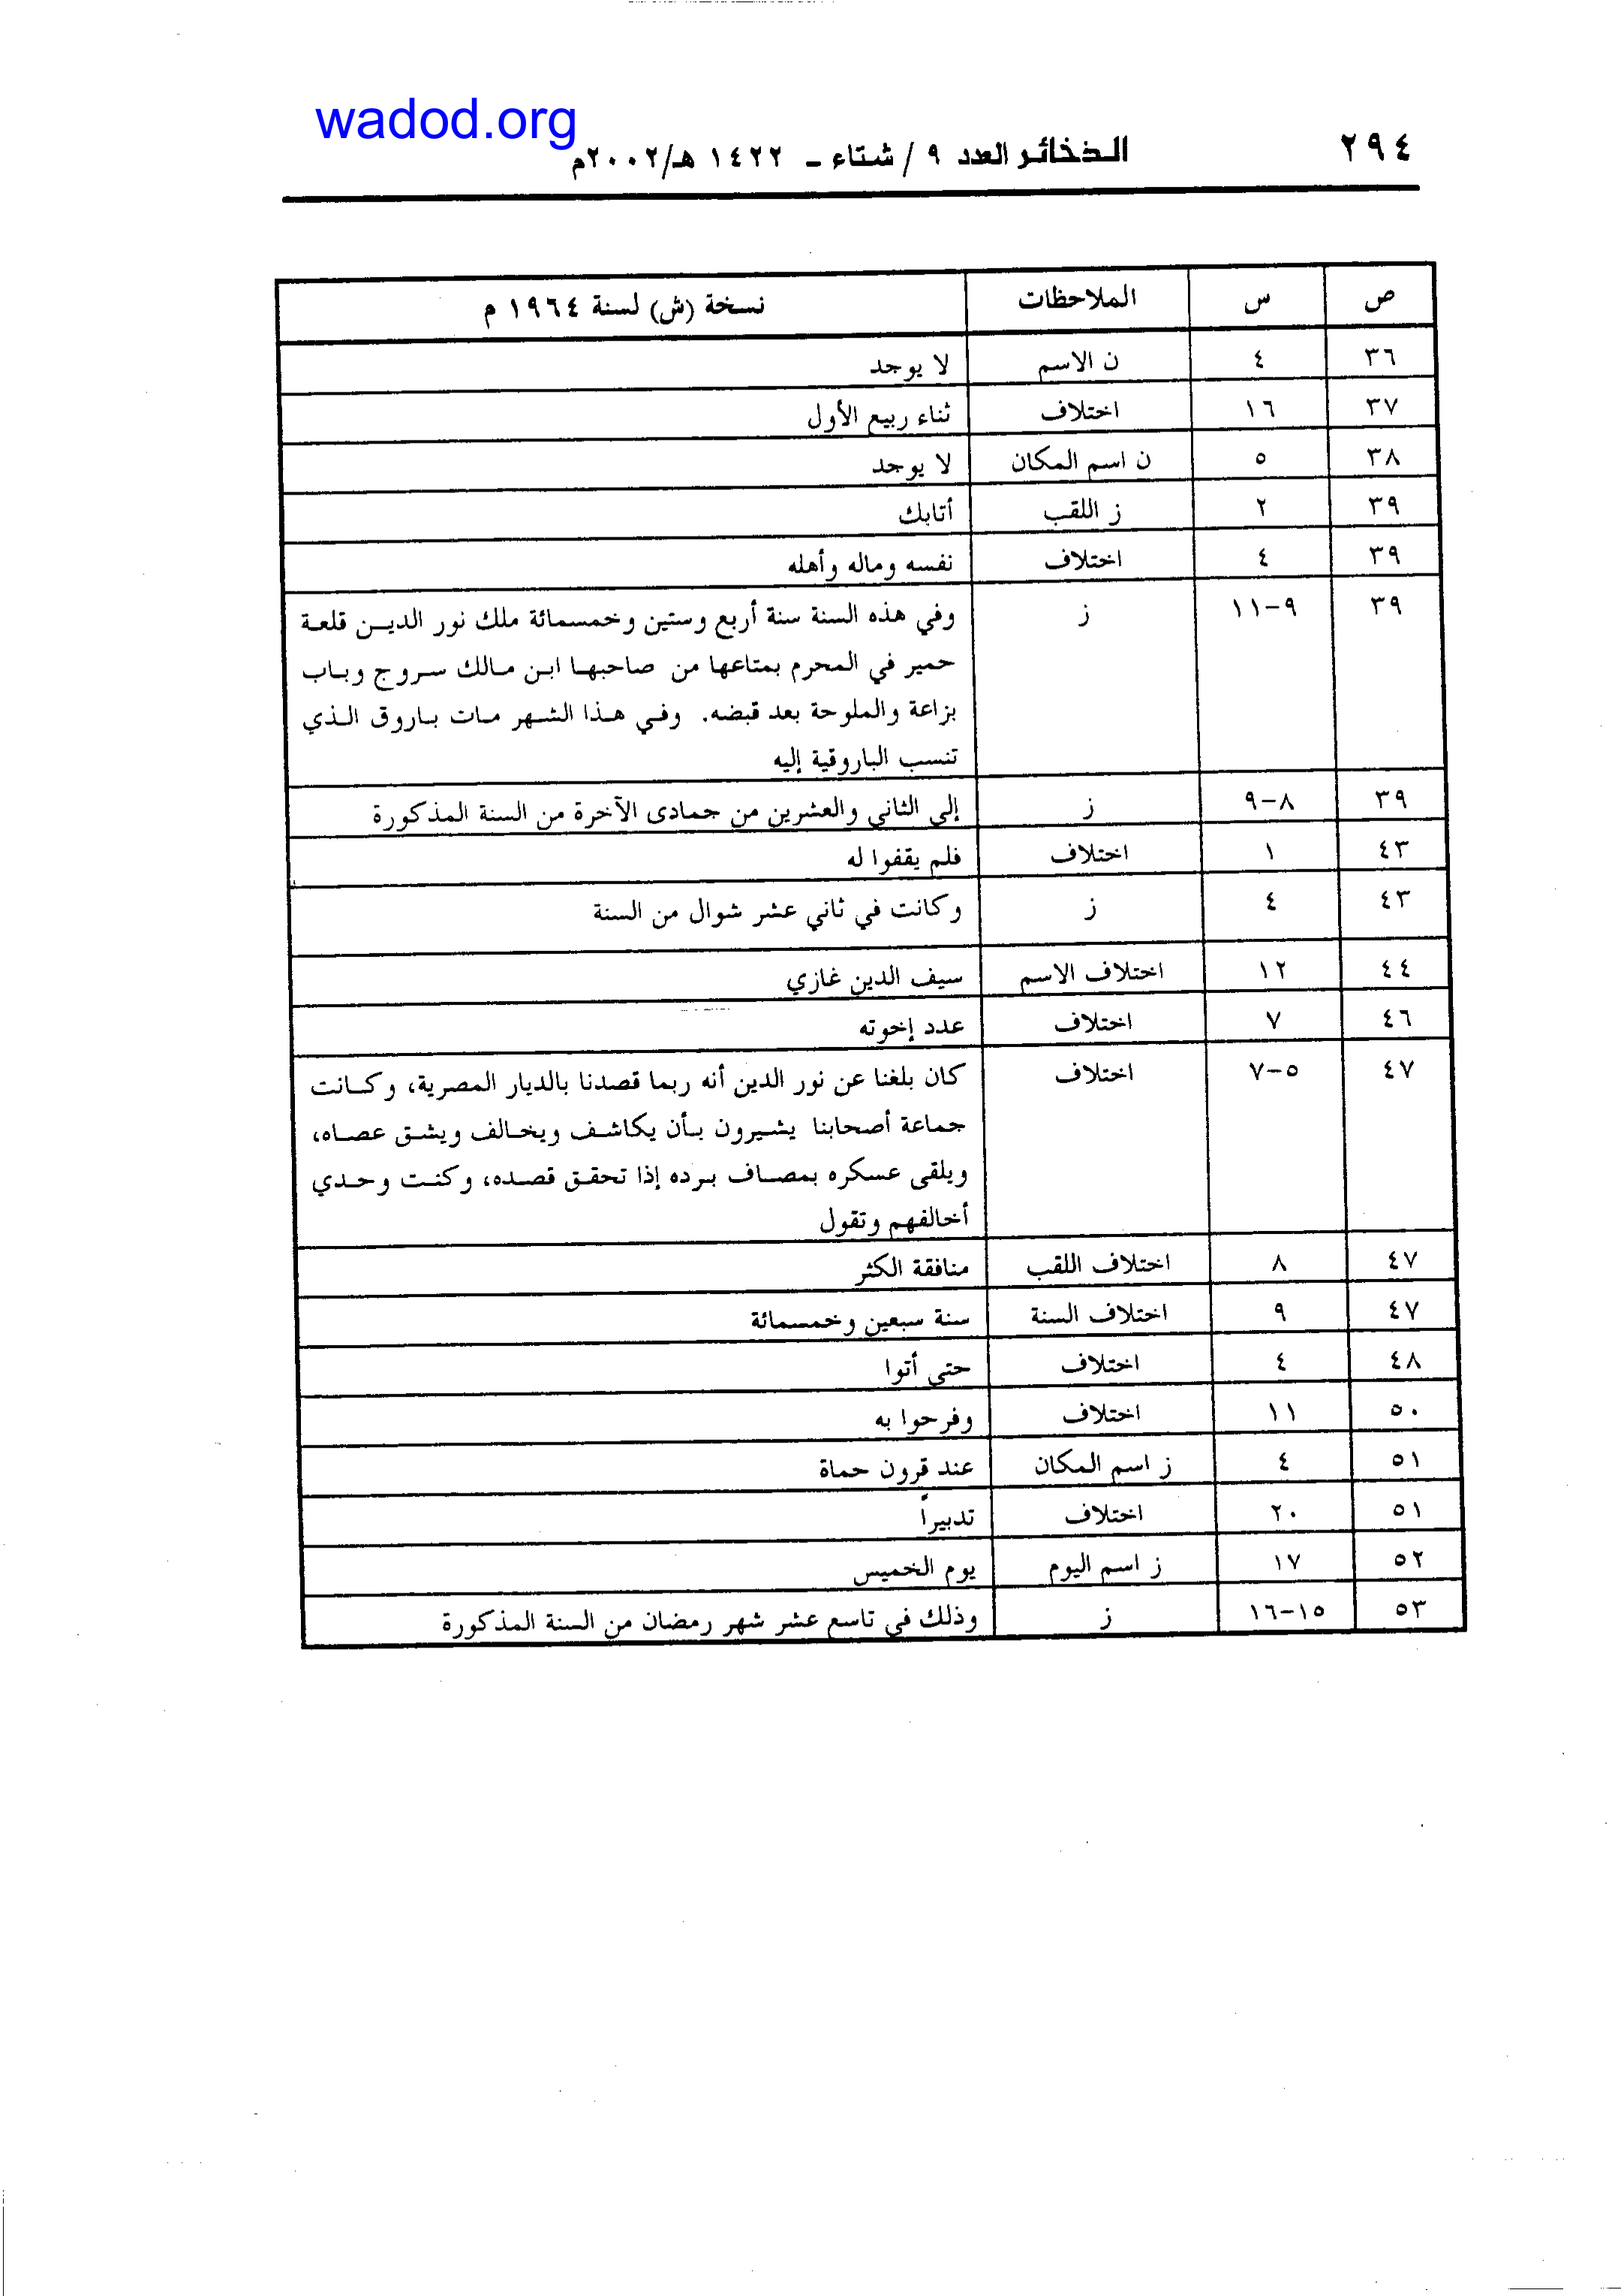 wadod.org
٢٩٤ الذخائر العدد ٩ / شتاء - ١٤٢٢ هـ/٢٠٠٢م
ص س الملاحظات نسخة (ش) لسنة ١٩٦٤ م
٣٦ ٤ ن الاسم لا يوجد
٣٧ ١٦ اختلاف ثناء ربيع الأول
٣٨ ٥ ن اسم المكان لا يوجد
٣٩ ٢ ز اللقب أتابك
٣٩ ٤ اختلاف نفسه وماله وأهله
٣٩ ٩-١١ ز وفي هذه السنة سنة أربع وستين وخمسمائة ملك نور الديـن قلعة
حمير في المحرم بمتاعها من صاحبهـا ابـن مـالك سـروج وبـاب
بزاعة والملوحة بعد قبضه. وفـي هـذا الشـهر مـات بـاروق الـذي
تنسب الباروقية إليه
٣٩ ٨-٩ ز إلى الثاني والعشرين من جمادى الآخرة من السنة المذكورة
٤٣ ١ اختلاف فلم يقفوا له
٤٣ ٤ ز وكانت في ثاني عشر شوال من السنة
٤٤ ١٢ اختلاف الاسم سيف الدين غازي
٤٦ ٧ اختلاف عدد إخوته
٤٧ ٥-٧ اختلاف كان بلغنا عن نور الدين أنه ربما قصدنا بالديار المصرية، وكـانت
جماعة أصحابنا يشـيرون بـأن يكاشـف ويخـالف ويشـق عصـاه،
ويلقى عسكره بمصـاف بـرده إذا تحقـق قصـده، وكنـت وحـدي
أخالفهم وتقول
٤٧ ٨ اختلاف اللقب منافقة الكثر
٤٧ ٩ اختلاف السنة سنة سبعين وخمسمائة
٤٨ ٤ اختلاف حتى أتوا
٥٠ ١١ اختلاف وفرحوا به
٥١ ٤ ز اسم المكان عند قرون حماة
٥١ ٢٠ اختلاف تدبيراً
٥٢ ١٧ ز اسم اليوم يوم الخميس
٥٣ ١٥-١٦ ز وذلك في تاسع عشر شهر رمضان من السنة المذكورة